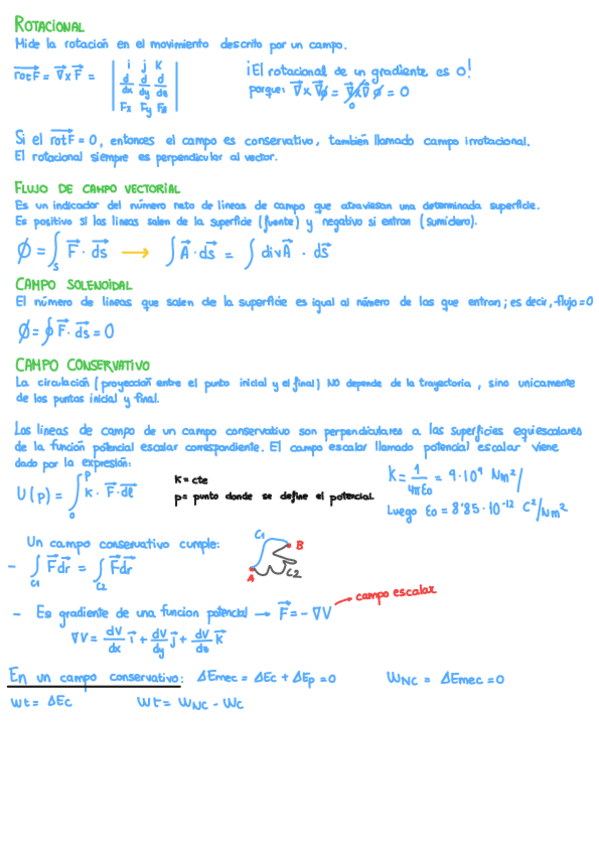 ROTACIONAL
Mide la rotación en el movimiento descrito por un campo.
rot F = ∇ x F = | i j k | d/dx d/dy d/dz | Fx Fy Fz |
¡El rotacional de un gradiente es 0!
porque: ∇ x ∇φ = ∇x∇ φ = 0
0
Si el rot F = 0, entonces el campo es conservativo, también llamado campo irrotacional.
El rotacional siempre es perpendicular al vector.
FLUJO DE CAMPO VECTORIAL
Es un indicador del número neto de lineas de campo que atraviesan una determinada superficie.
Es positivo si las lineas salen de la superficie (fuente) y negativo si entran (sumidero).
Ø = ∫s F · ds → ∫ A · ds = ∫ div A · ds
CAMPO SOLENOIDAL
El número de lineas que salen de la superficie es igual al número de las que entran; es decir, flujo = 0
Ø = ∮ F · ds = 0
CAMPO CONSERVATIVO
La circulación (proyección entre el punto inicial y el final) NO depende de la trayectoria, sino unicamente
de los puntos inicial y final.
Las lineas de campo de un campo conservativo son perpendiculares a las superficies equiescalares
de la función potencial escalar correspondiente. El campo escalar llamado potencial escalar viene
dado por la expresión:
U(p) = ∫₀ᴾ K · F · dl
K = cte
p = punto donde se define el potencial
K = 1/4πε0 = 9·10⁹ Nm²/
Luego ε0 = 8'85·10⁻¹² C²/Nm²
Un campo conservativo cumple:
- ∫C1 F dr = ∫C2 F dr
C1
B
A
C2
- Es gradiente de una funcion potencial → F = - ∇V
campo escalar
∇V = dV/dx i + dV/dy j + dV/dz k
En un campo conservativo: ΔEmec = ΔEc + ΔEp = 0 WNC = ΔEmec = 0
Wt = ΔEc Wt = WNC - WC